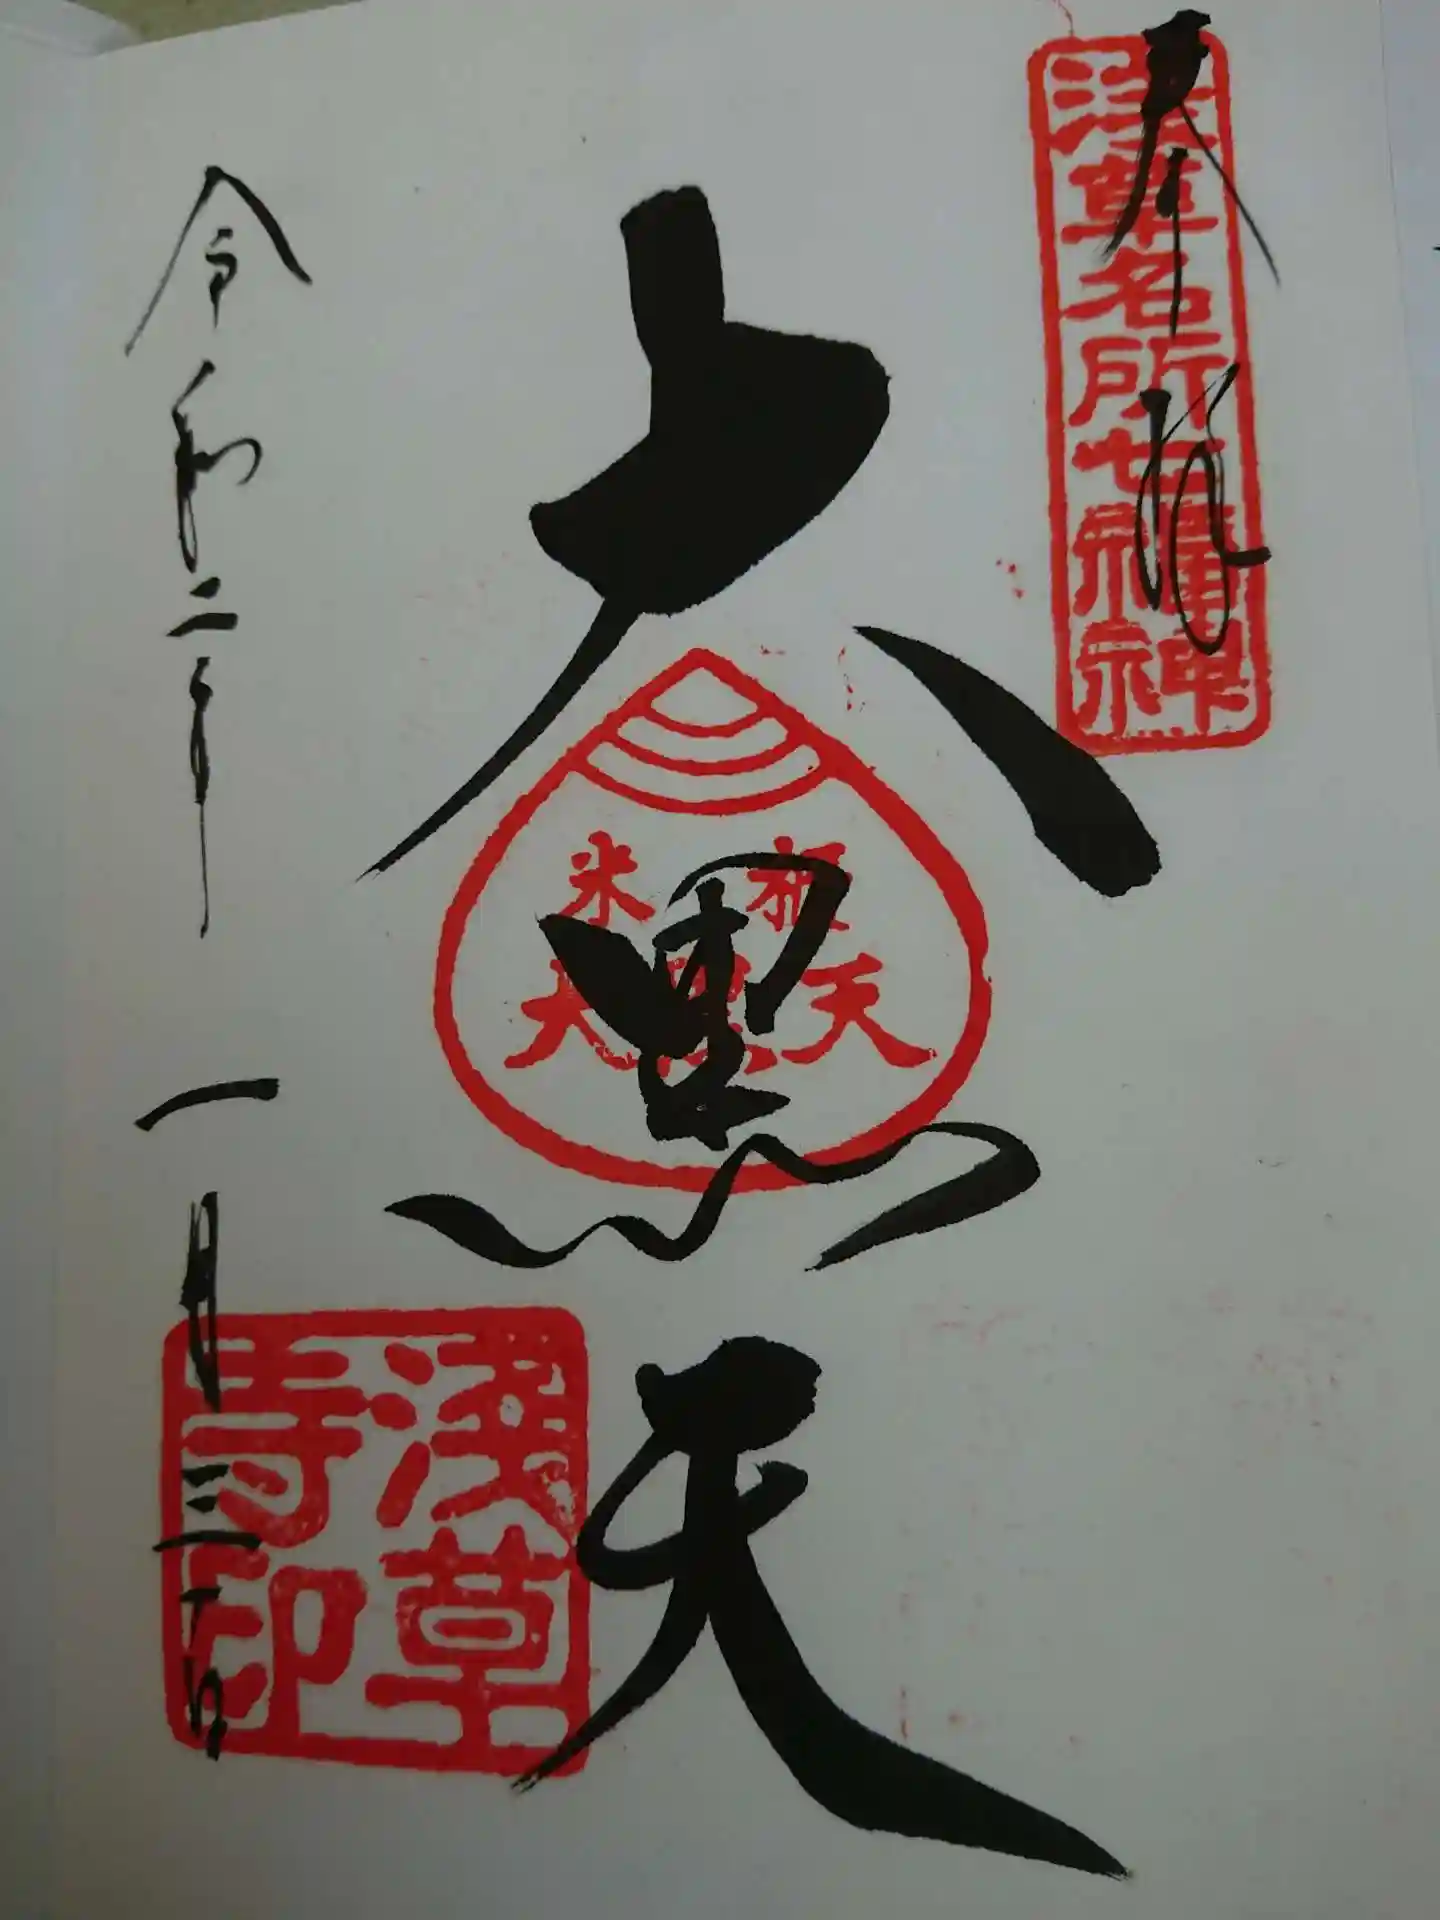 奉拝
浅草名所七福神
大黒天
米柢
大黒天
令和二年一月三日
淺草
寺印